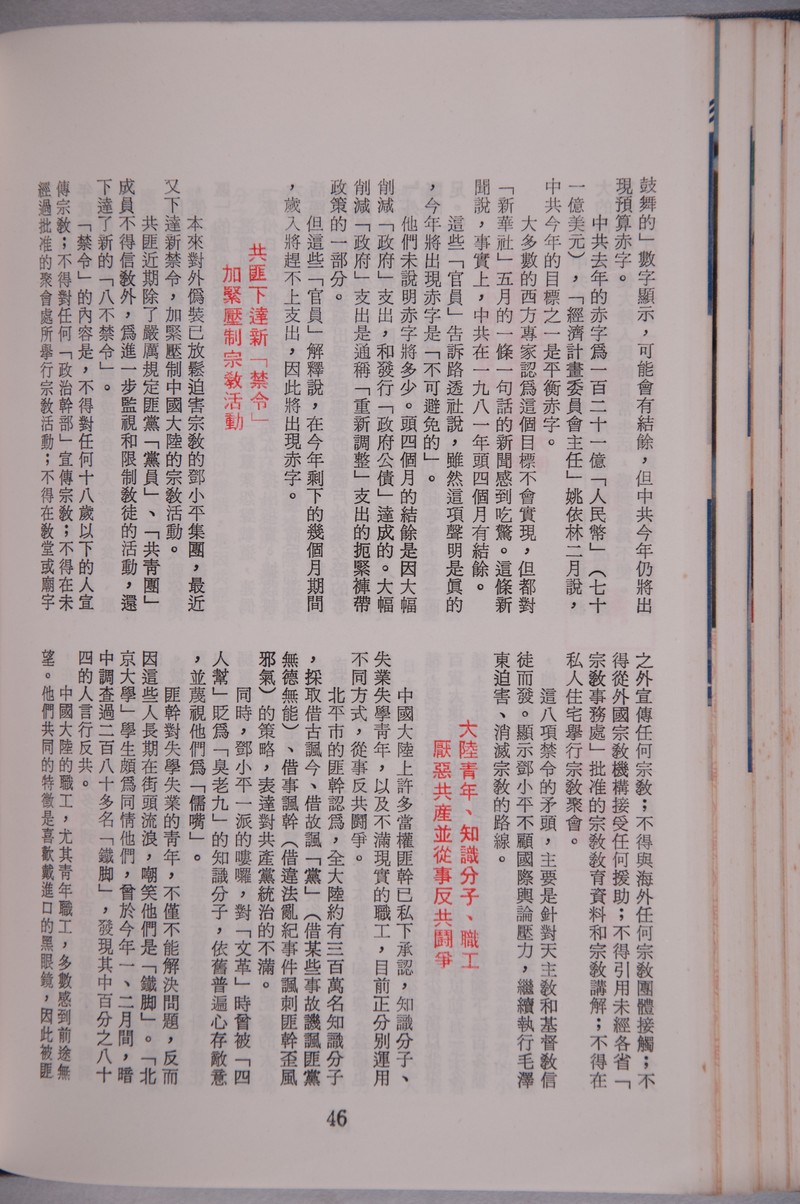 鼓舞的」數字顯示，可能會有結餘，但中共今年仍將出
現預算赤字。
中共去年的赤字爲一百二十一億「人民幣」（七十
一億美元），「經濟計畫委員會主任」姚依林二月說，
中共今年的目標之一是平衡赤字。
大多數的西方專家認爲這個目標不會實現，但都對
「新華社」五月的一條一句話的新聞感到吃驚。這條新
聞說，事實上，中共在一九八一年頭四個月有結餘。
這些「官員」告訴路透社說，雖然這項聲明是眞的
，今年將出現赤字是「不可避免的」。
他們未說明赤字將多少。頭四個月的結餘是因大幅
削減「政府」支出，和發行「政府公債」達成的。大幅
削減「政府」支出是通稱「重新調整」支出的扼緊褲帶
政策的一部分。
但這些「官員」解釋說，在今年剩下的幾個月期間
，歲入將趕不上支出，因此將出現赤字。
共匪下達新「禁令」
加緊壓制宗敎活動
本來對外僞裝已放鬆迫害宗敎的鄧小平集團，最近
又下達新禁令，加緊壓制中國大陸的宗敎活動。
共匪近期除了嚴厲規定匪黨「黨員」、「共靑團」
成員不得信敎外，爲進一步監視和限制敎徒的活動，還
下達了新的「八不禁令」。
「禁令」的內容是，不得對任何十八歲以下的人宣
傳宗敎；不得對任何「政治幹部」宣傳宗敎；不得在未
經過批准的聚會處所舉行宗敎活動；不得在敎堂或廟宇
之外宣傳任何宗敎；不得與海外任何宗敎團體接觸；不
得從外國宗敎機構接受任何援助；不得引用未經各省「
宗敎事務處」批准的宗敎敎育資料和宗敎講解；不得在
私人住宅舉行宗敎聚會。
這八項禁令的矛頭，主要是針對天主敎和基督敎信
徒而發。顯示鄧小平不顧國際輿論壓力，繼續執行毛澤
東迫害、消滅宗敎的路線。
大陸靑年、知識分子、職工
厭惡共產並從事反共鬪爭
中國大陸上許多當權匪幹已私下承認，知識分子、
失業失學靑年，以及不滿現實的職工，目前正分別運用
不同方式，從事反共鬪爭。
北平市的匪幹認爲，全大陸約有三百萬名知識分子
，採取借古諷今、借故諷「黨」（借某些事故譏諷匪黨
無德無能）、借事諷幹（借違法亂紀事件諷刺匪幹歪風
邪氣）的策略，表達對共產黨統治的不滿。
同時，鄧小平一派的嘍囉，對「文革」時曾被「四
人幫」貶爲「臭老九」的知識分子，依舊普遍心存敵意
，並蔑視他們爲「儒嘴」。
匪幹對失學失業的靑年，不僅不能解決問題，反而
因這些人長期在街頭流浪，嘲笑他們是「鐵脚」。「北
京大學」學生頗爲同情他們，曾於今年一、二月間，暗
中調查過二百八十多名「鐵脚」，發現其中百分之八十
四的人言行反共。
中國大陸的職工，尤其靑年職工，多數感到前途無
望。他們共同的特徵是喜歡戴進口的黑眼鏡，因此被匪
46